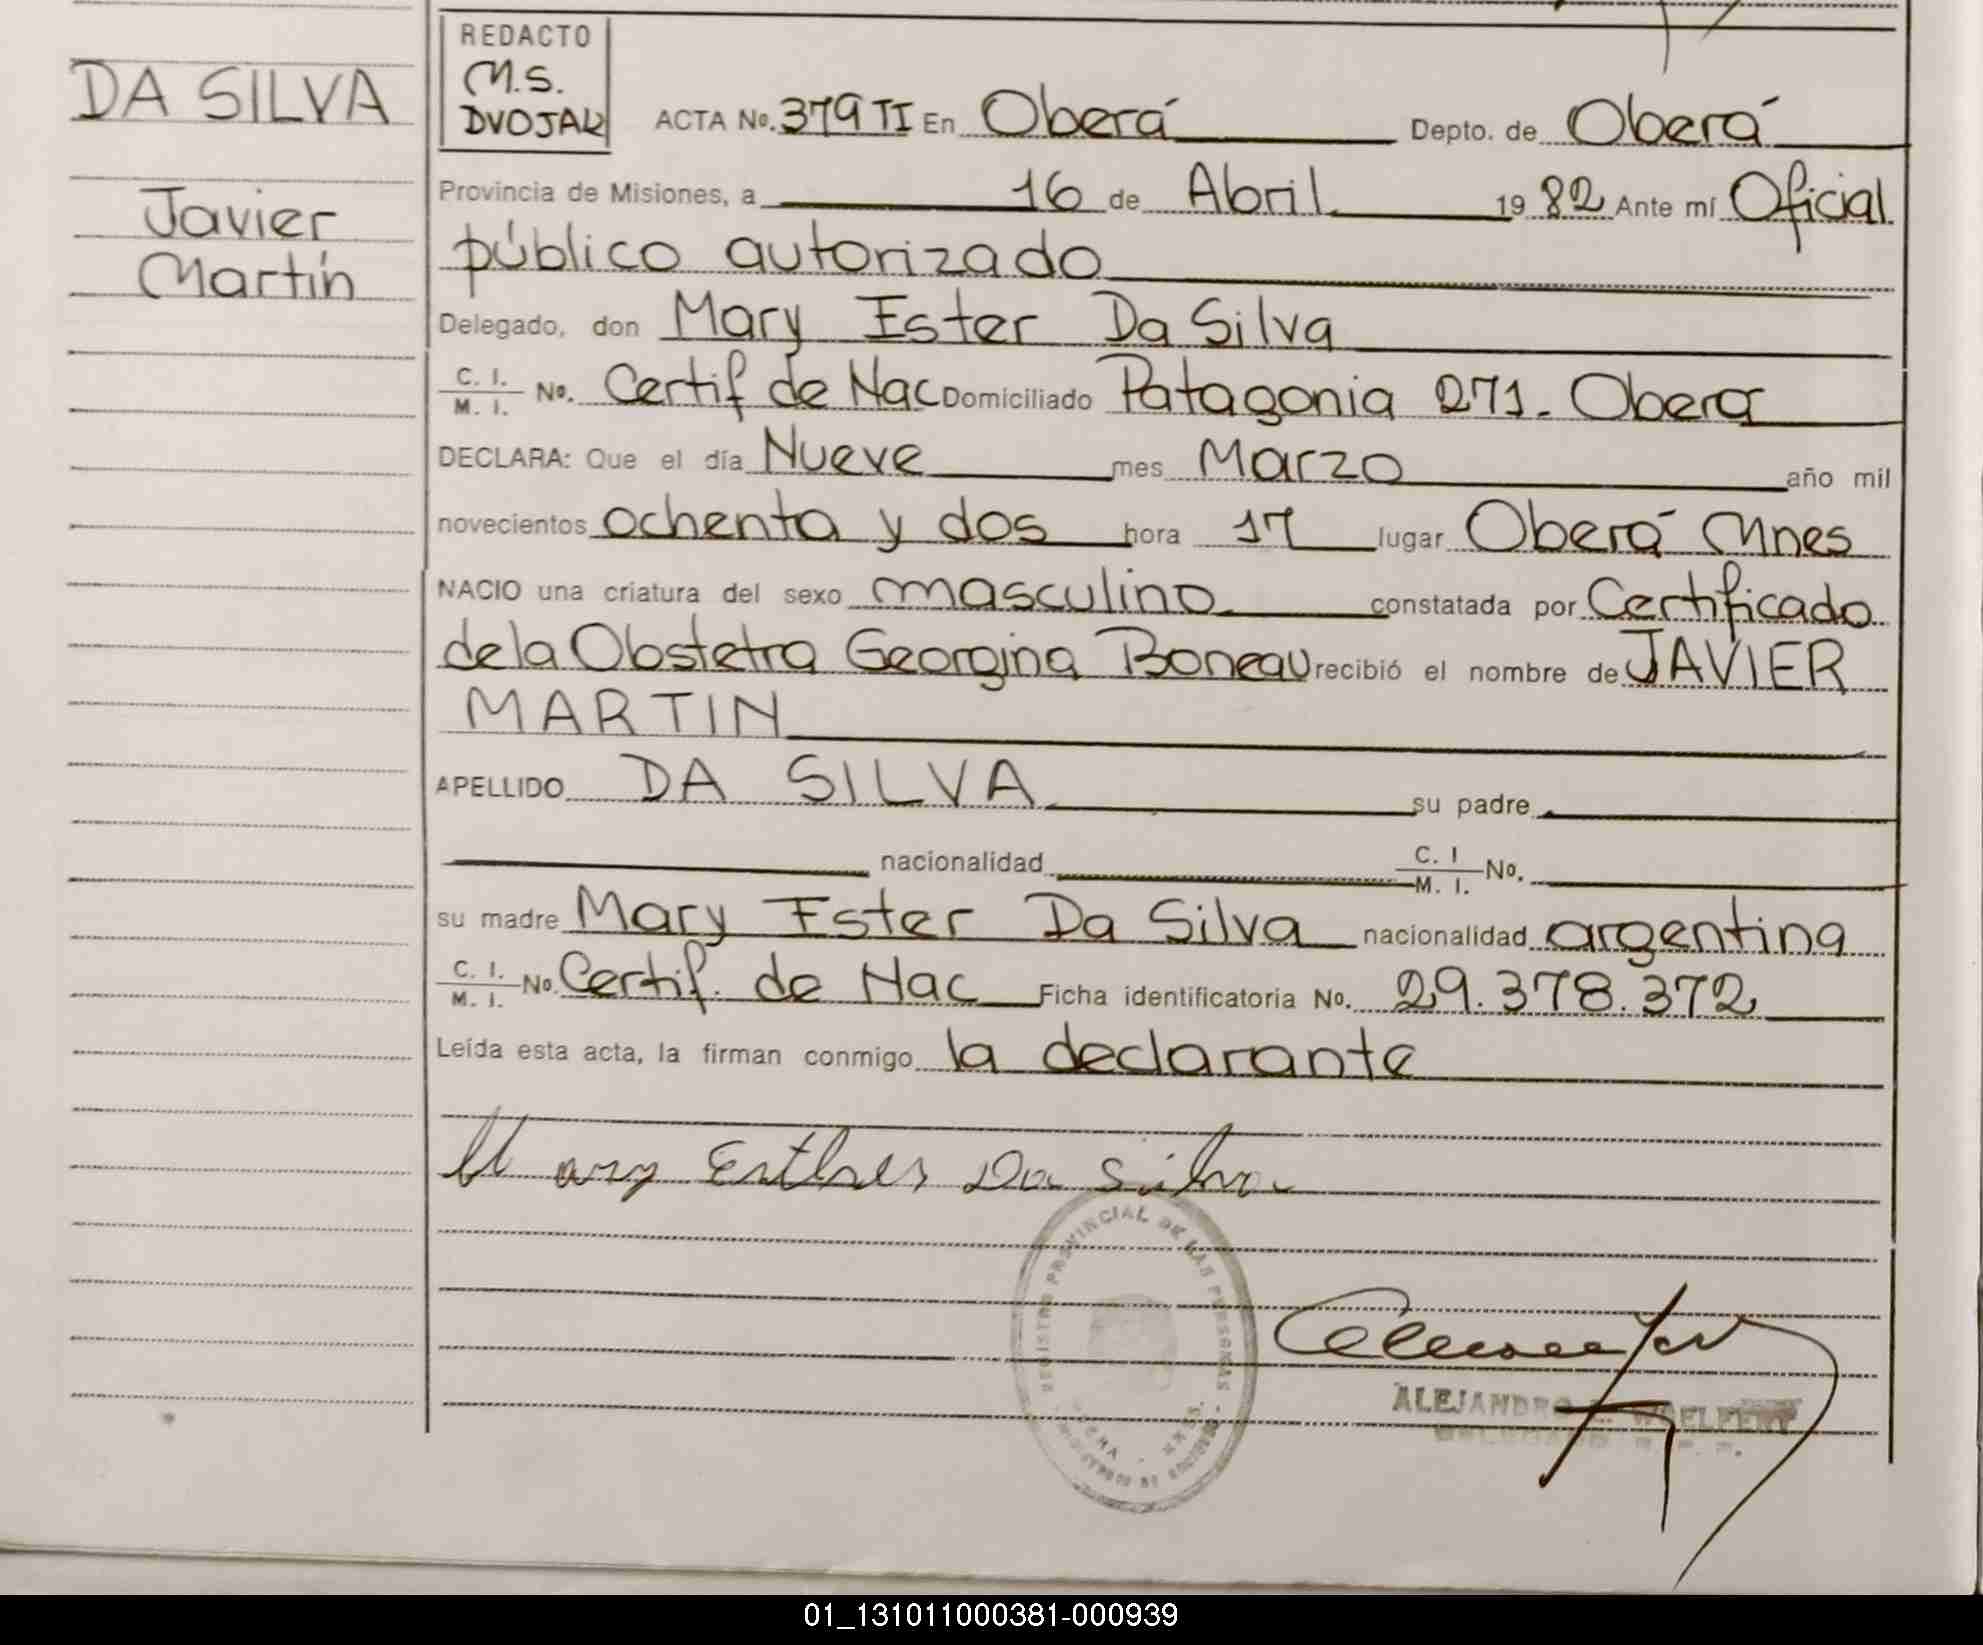 DA SILVA
Javier
Martín
REDACTO
M.S.
DVOJAK
ACTA No. 379 TI En Oberá Depto. de Oberá
Provincia de Misiones, a 16 de Abril 1982 Ante mí Oficial
público autorizado
Delegado, don Mary Ester Da Silva
C. I. / M. I. No. Certif de Nac Domiciliado Patagonia 271. Obera
DECLARA: Que el día Nueve mes Marzo año mil
novecientos ochenta y dos hora 17 lugar Oberá Mnes
NACIO una criatura del sexo masculino constatada por Certificado
de la Obstetra Georgina Boneau recibió el nombre de JAVIER
MARTIN
APELLIDO DA SILVA su padre
nacionalidad C. I / M. I. No.
su madre Mary Ester Da Silva nacionalidad argentina
C. I. / M. I. No. Certif. de Nac Ficha identificatoria No. 29.378.372
Leída esta acta, la firman conmigo la declarante
Mary Esther Da Silva
REGISTRO PROVINCIAL DE LAS PERSONAS
ALEJANDRO WOELFERT
01_131011000381-000939